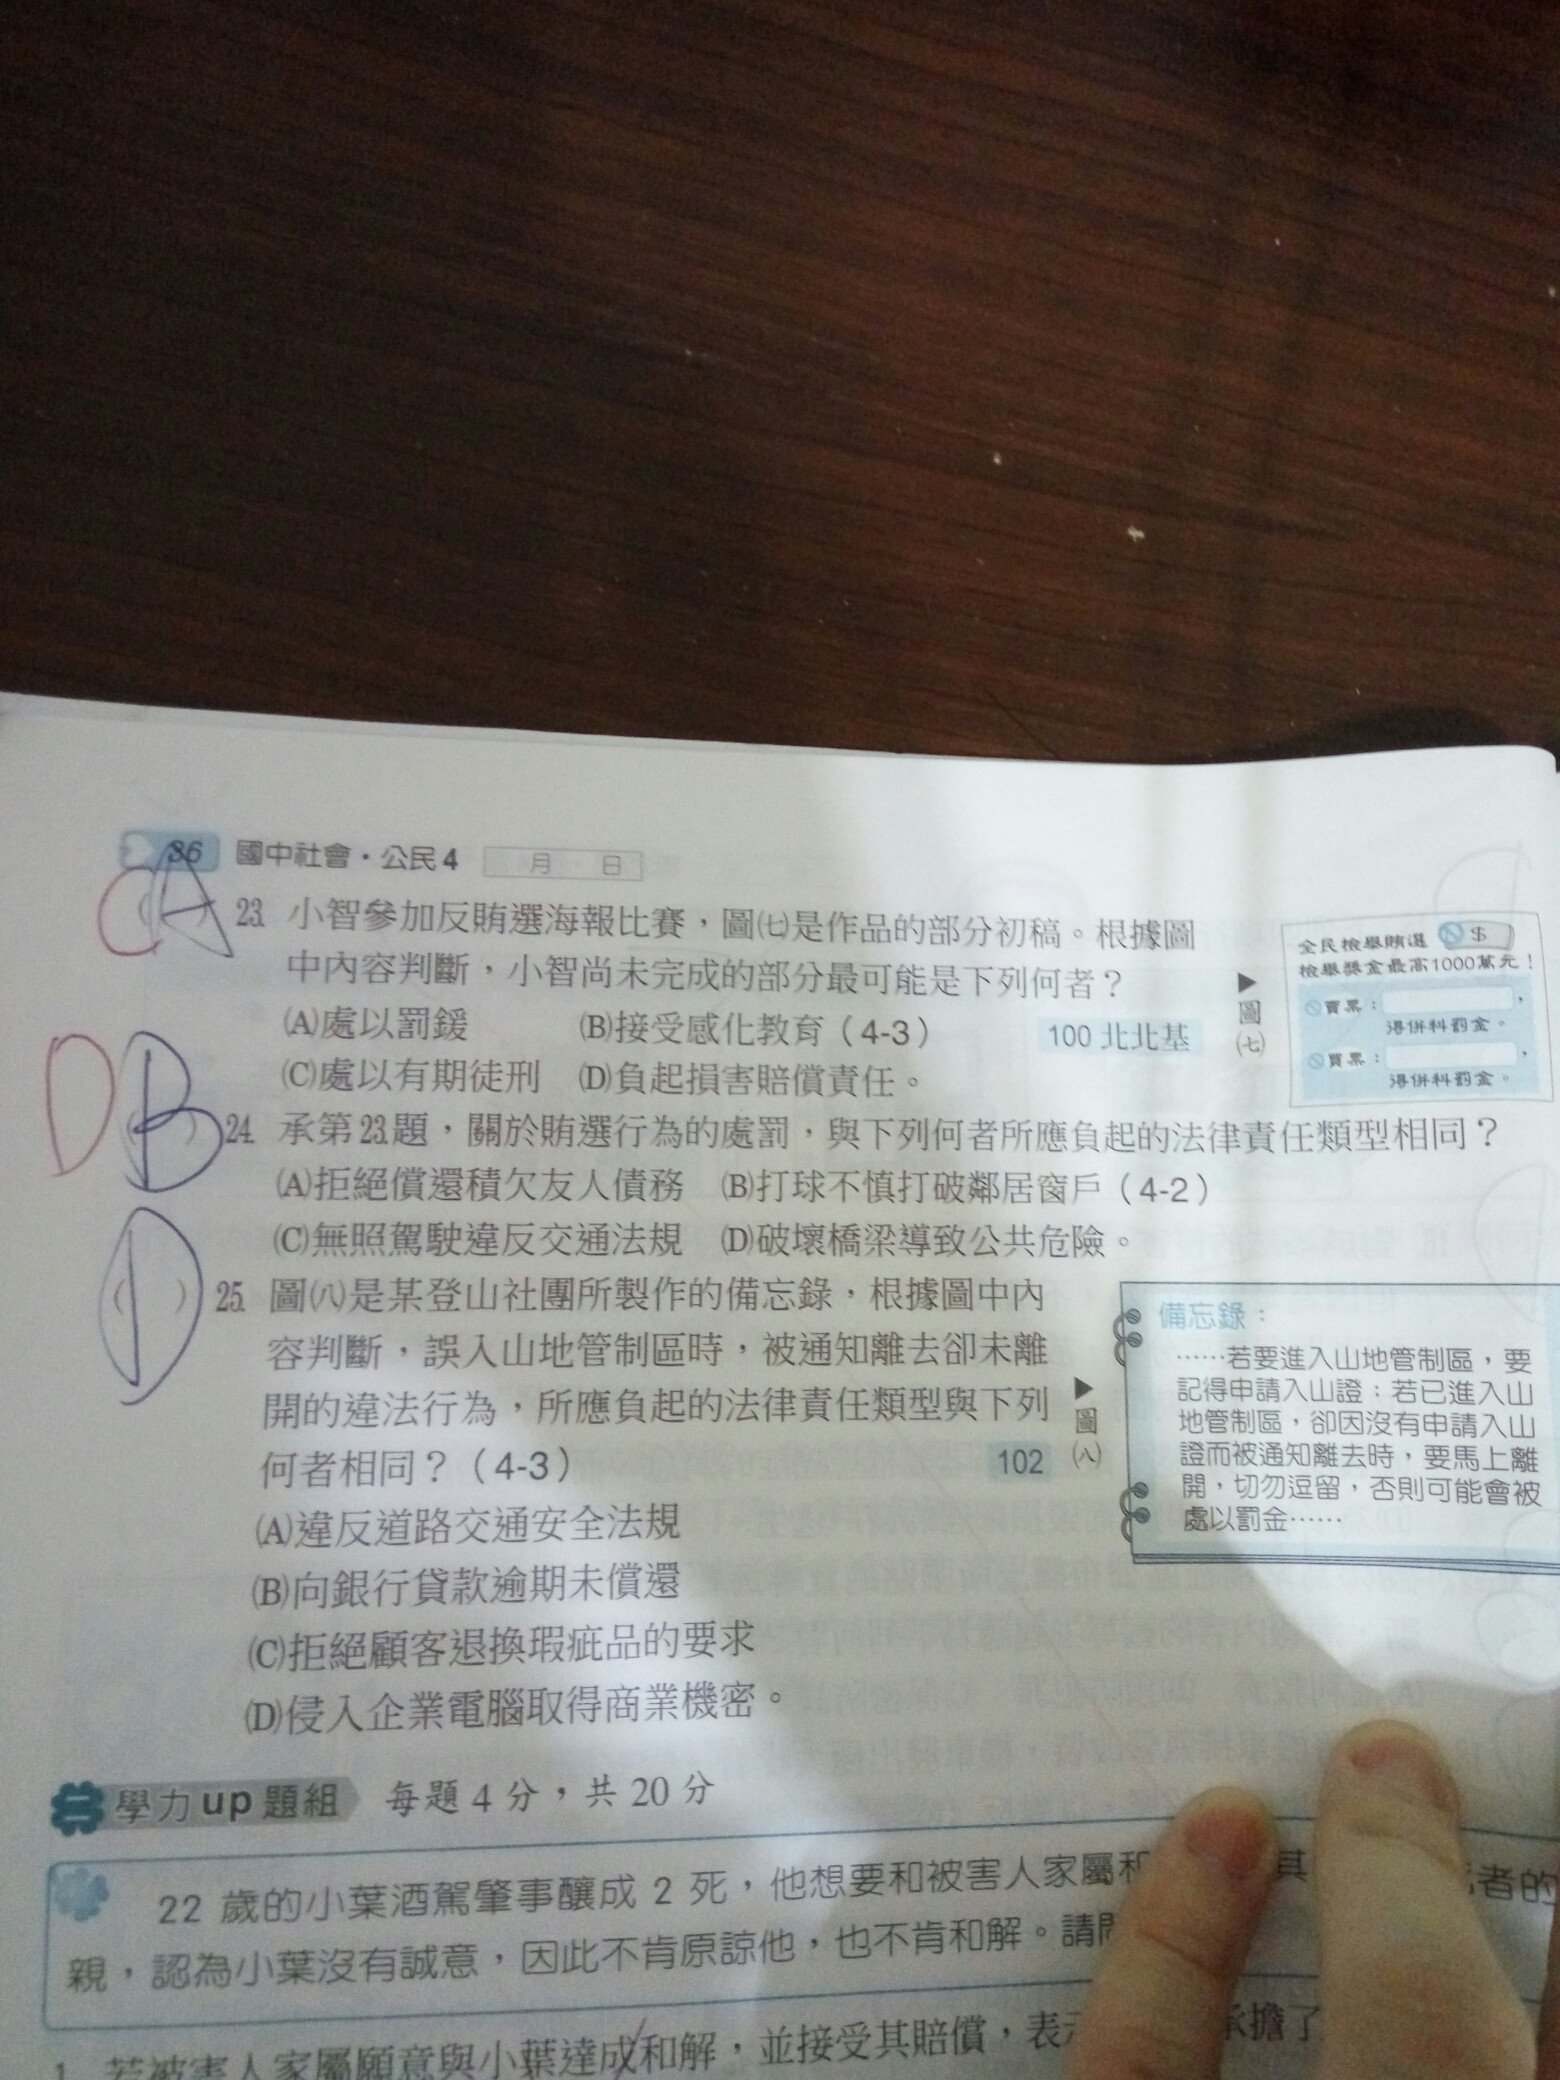 36 國中社會・公民4 月 日
CA 23. 小智參加反賄選海報比賽，圖㈦是作品的部分初稿。根據圖
中內容判斷，小智尚未完成的部分最可能是下列何者？
(A)處以罰鍰 (B)接受感化教育（4-3） 100 北北基
(C)處以有期徒刑 (D)負起損害賠償責任。
▶圖㈦
全民檢舉賄選 $
檢舉獎金最高1000萬元！
賣票： ，
得併科罰金。
買票： ，
得併科罰金。
D B 24. 承第23.題，關於賄選行為的處罰，與下列何者所應負起的法律責任類型相同？
(A)拒絕償還積欠友人債務 (B)打球不慎打破鄰居窗戶（4-2）
(C)無照駕駛違反交通法規 (D)破壞橋梁導致公共危險。
D ( ) 25. 圖㈧是某登山社團所製作的備忘錄，根據圖中內
容判斷，誤入山地管制區時，被通知離去卻未離
開的違法行為，所應負起的法律責任類型與下列
何者相同？（4-3） 102
▶圖㈧
備忘錄：
……若要進入山地管制區，要
記得申請入山證；若已進入山
地管制區，卻因沒有申請入山
證而被通知離去時，要馬上離
開，切勿逗留，否則可能會被
處以罰金……
(A)違反道路交通安全法規
(B)向銀行貸款逾期未償還
(C)拒絕顧客退換瑕疵品的要求
(D)侵入企業電腦取得商業機密。
二 學力up題組 每題4分，共20分
22 歲的小葉酒駕肇事釀成 2 死，他想要和被害人家屬和 其 者的
親，認為小葉沒有誠意，因此不肯原諒他，也不肯和解。請
1. 若被害人家屬願意與小葉達成和解，並接受其賠償，表 承擔了